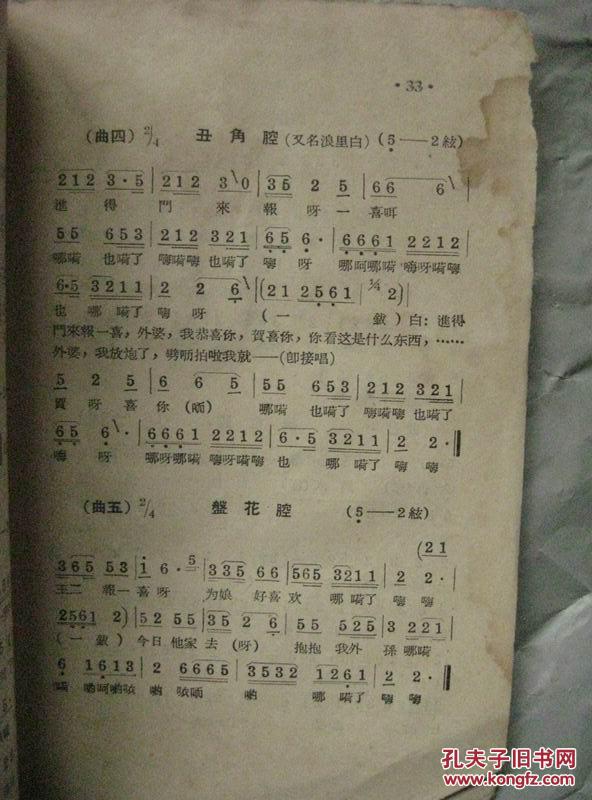 ·33·
(曲四) 2/4 丑角腔 (又名浪里白) (5——2絃)
212 3·5 | 212 3\0 | 35 2 5 | 66 6\ |
進得門來報呀一喜咡
55 653 | 212 321 | 65 6· | 6661 2212 |
哪嗬也嗬了嗨嗬嗨也嗬了嗨呀哪呵哪嗬嗨呀嗬嗨
6·5 3211 | 2 2 6 | (21 2561 | 3/4 2) |
也哪嗬了嗨呀(一)白:進得
門來報一喜,外婆,我恭喜你,賀喜你,你看这是什么东西,……
外婆,我放炮了,劈呖拍啦我就——(卽接唱)
5 2 5 | 6 6 5 | 55 653 | 212 321 |
賀呀喜你哪嗬也嗬了嗨嗬嗨也嗬了
65 6\· | 6661 2212 | 6·5 3211 | 2 2· ‖
嗨呀哪呀哪嗬嗨呀嗬嗨也哪嗬了嗨嗨
(曲五) 2/4 盤花腔 (5——2絃)
(21
365 53 | 1 6· 5 | 335 66 | 565 3211 | 2 2· |
王二報一喜呀为娘好喜欢哪嗬了嗨嗨
2561 2) | 52 55 | 35 2 6 | 55 525 | 3 221 |
(一)今日他家去(呀)抱抱我外孫哪嗬
6 1613 | 2 6665 | 3532 1261 | 2 2· ‖
哪嗬了嗨嗨
孔夫子旧书网
www.kongfz.com